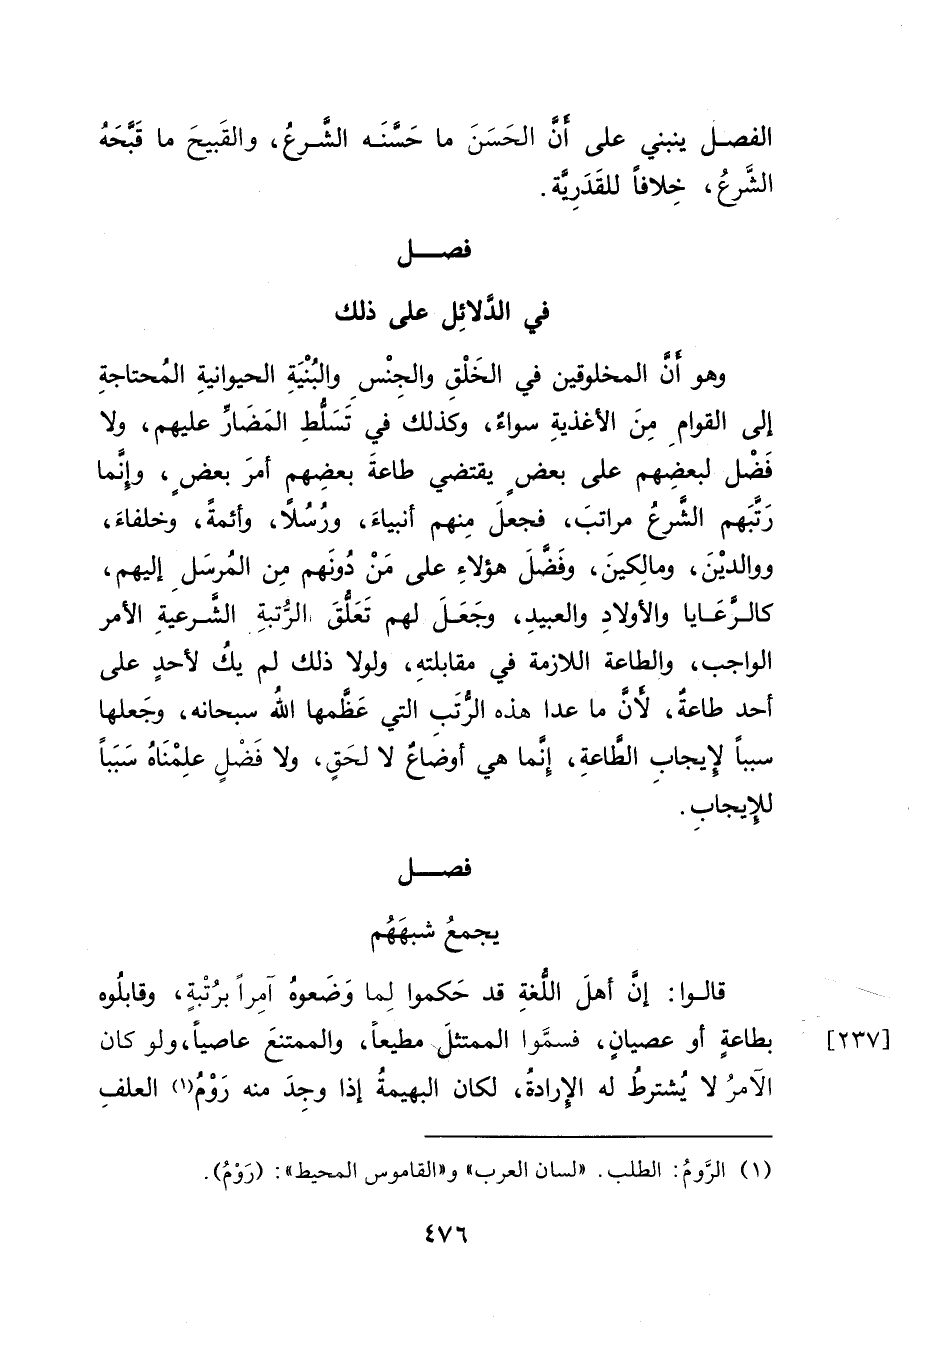 الفصل ينبني على أَنَّ الحَسَنَ ما حَسَّنَه الشَّرعُ، والقَبيحَ ما قَبَّحَهُ
الشَّرعُ، خِلافاً للقَدَرِيَّة.
فصل
في الدَّلائِل على ذلك
وهو أَنَّ المخلوقين في الخَلْقِ والجِنْسِ والبُنْيَةِ الحيوانيةِ المُحتاجةِ
إلى القوامِ مِنَ الأغذيةِ سواءٌ، وكذلك في تَسَلُّطِ المَضَارِّ عليهم، ولا
فَضْل لبعضِهم على بعضٍ يقتضي طاعةَ بعضِهم أمرَ بعضٍ، وإنَّما
رَتَّبَهم الشَّرعُ مراتبَ، فجعلَ مِنهم أنبياءَ، ورُسُلًا، وأئمةً، وخلفاءَ،
ووالديْنَ، ومالِكينَ، وفَضَّلَ هؤلاءِ على مَنْ دُونَهم مِن المُرسَلِ إليهم،
كالرَّعَايا والأولادِ والعبيدِ، وجَعَلَ لهم تَعَلُّقَ الرُّتبةِ الشَّرعيةِ الأمر
الواجب، والطاعة اللازمة في مقابلتهِ، ولولا ذلك لم يكُ لأحدٍ على
أحد طاعةٌ، لأَنَّ ما عدا هذه الرُّتَبِ التي عَظَّمها اللهُ سبحانه، وجَعلها
سبباً لإِيجابِ الطَّاعةِ، إنَّما هي أوضاعٌ لا لحَقٍ، ولا فَضْلٍ علِمْنَاهُ سَبَباً
للإِيجابِ.
فصل
يجمعُ شبهَهُم
قالوا: إنَّ أهلَ اللُّغةِ قد حَكموا لِما وَضَعوهُ آمِراً برُتْبةٍ، وقابلُوه
بطاعةٍ أو عصيانٍ، فسمَّوا الممتثلَ مطيعاً، والممتنعَ عاصياً، ولو كان [٢٣٧]
الآمرُ لا يُشترطُ له الإِرادةُ، لكان البهيمةُ إذا وجِدَ منه رَوْمُ(١) العلفِ
(١) الرَّومُ: الطلب. «لسان العرب» و«القاموس المحيط»: (رَوْمُ).
٤٧٦